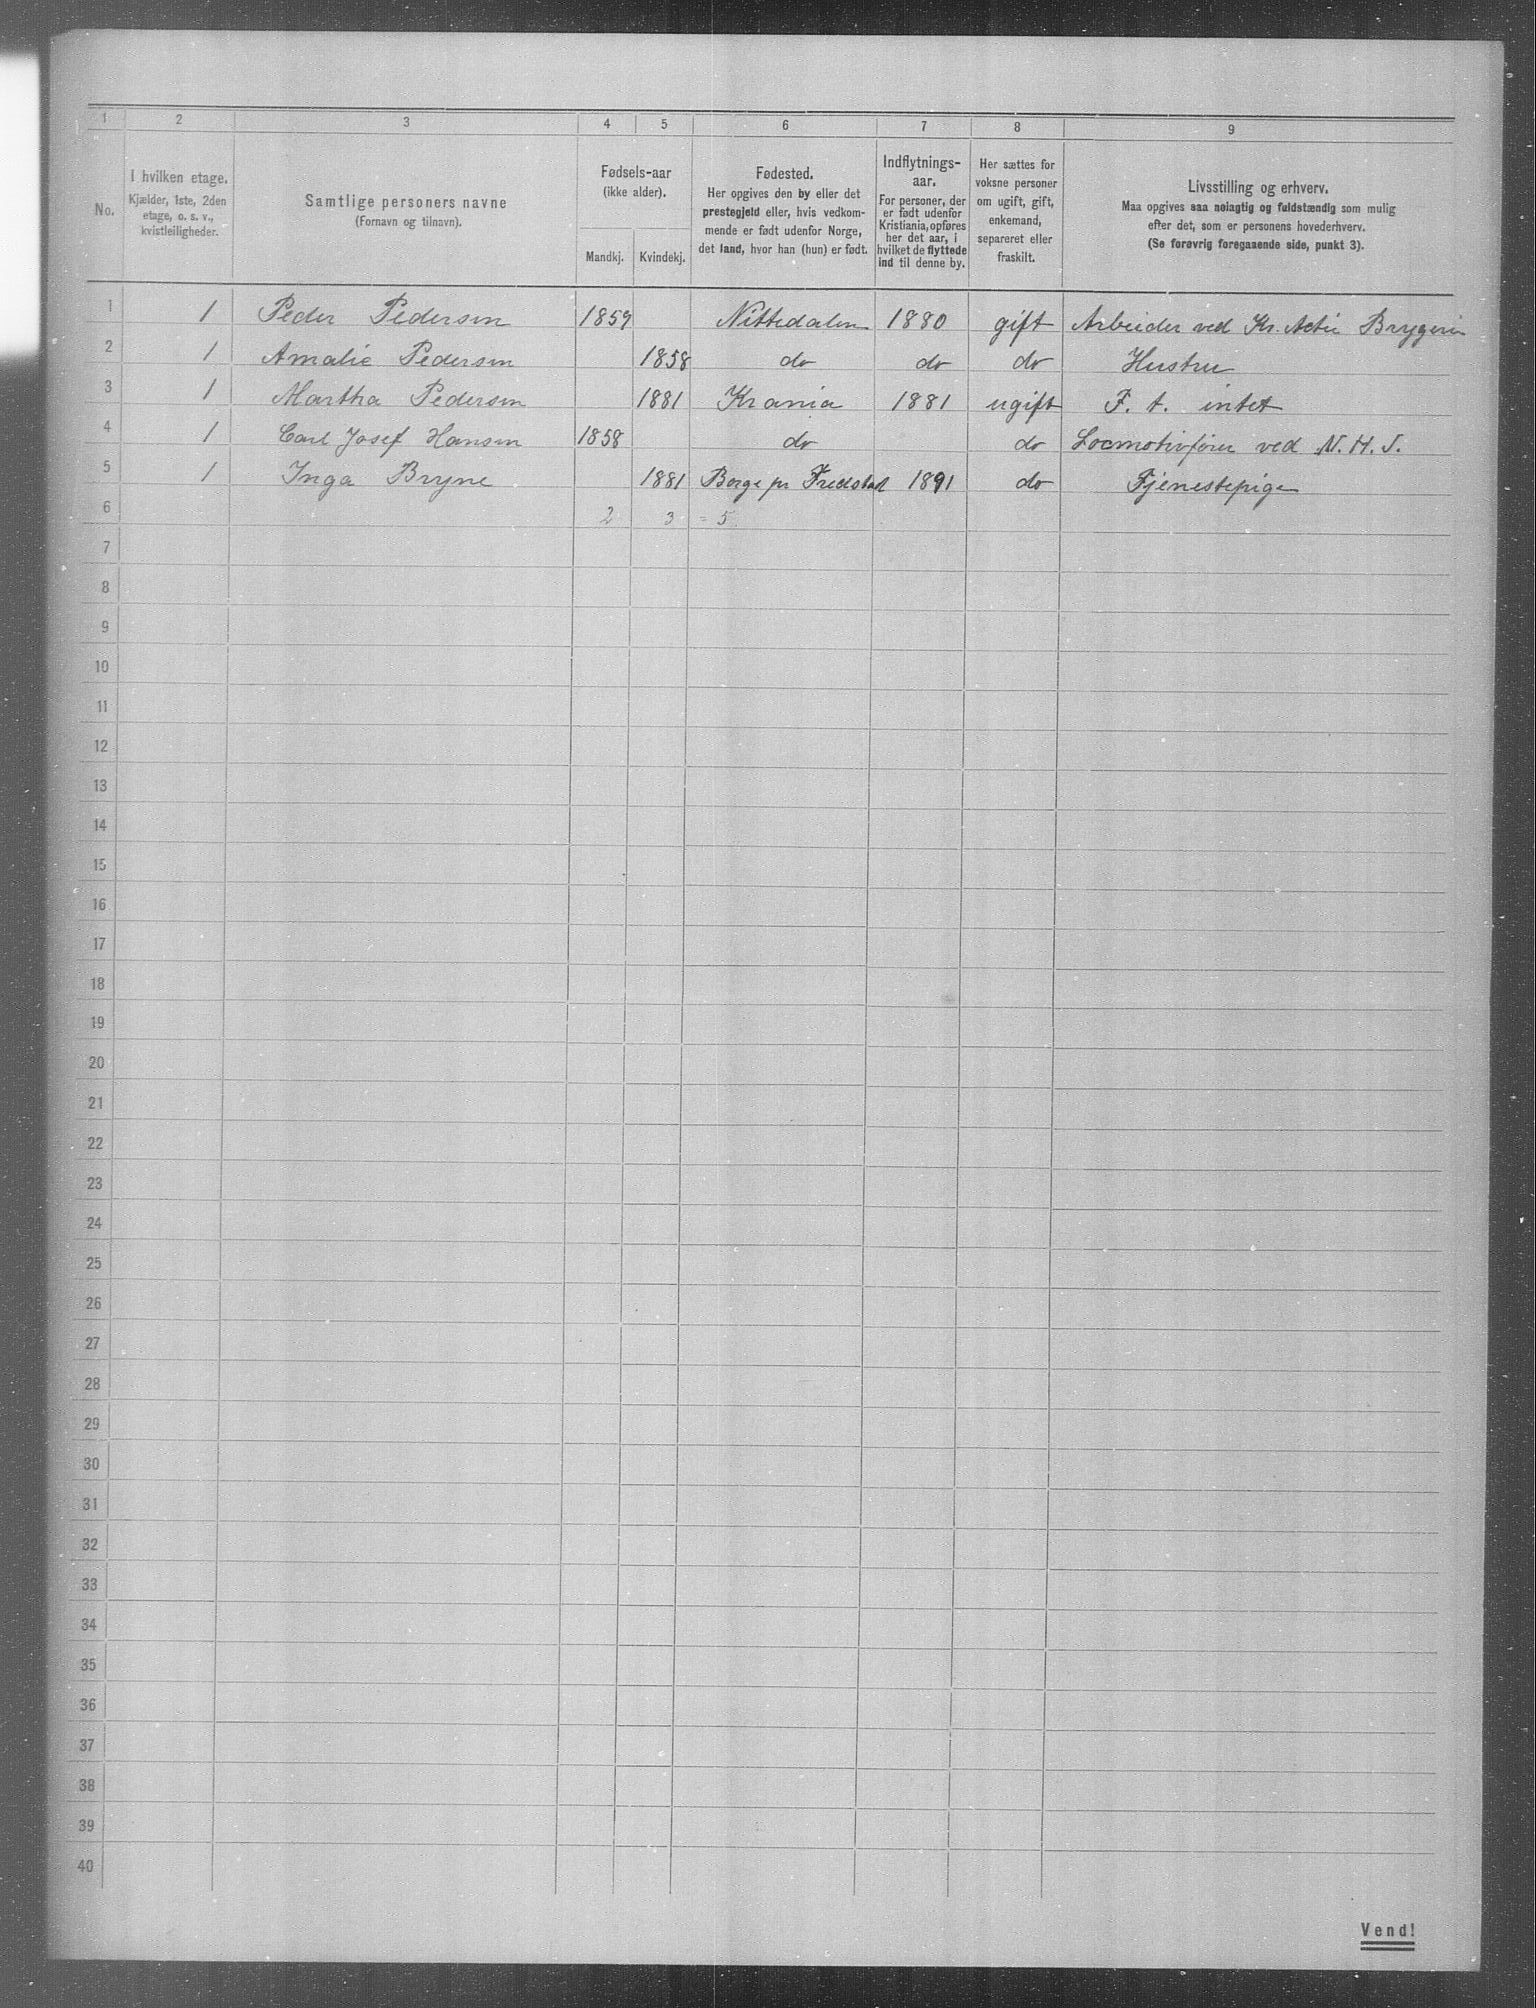 1 2 3 4 5 6 7 8 9
No.
I hvilken etage.
Kjælder, 1ste, 2den
etage, o. s. v.,
kvistleiligheder.
Samtlige personers navne
(Fornavn og tilnavn).
Fødsels-aar
(ikke alder).
Mandkj. Kvindekj.
Fødested.
Her opgives den by eller det
prestegjeld eller, hvis vedkom-
mende er født udenfor Norge,
det land, hvor han (hun) er født.
Indflytnings-
aar.
For personer, der
er født udenfor
Kristiania, opføres
her det aar, i
hvilket de flyttede
ind til denne by.
Her sættes for
voksne personer
om ugift, gift,
enkemand,
separeret eller
fraskilt.
Livsstilling og erhverv.
Maa opgives saa nøiagtig og fuldstændig som mulig
efter det, som er personens hovederhverv.
(Se forøvrig foregaaende side, punkt 3).
1 1 Peder Pedersen 1859 Nittedalen 1880 gift Arbeider ved Kr. Actie Brygeri
2 1 Amalie Pedersen 1858 do do do Hustru
3 1 Martha Pedersen 1881 Krania 1881 ugift F. t. intet
4 1 Carl Josef Hansen 1858 do do Locmotivfører ved N. H. J.
5 1 Inga Bryne 1881 Borge pr Fredstad 1891 do Tjenestepige
6 2 3 = 5
7
8
9
10
11
12
13
14
15
16
17
18
19
20
21
22
23
24
25
26
27
28
29
30
31
32
33
34
35
36
37
38
39
40
Vend!